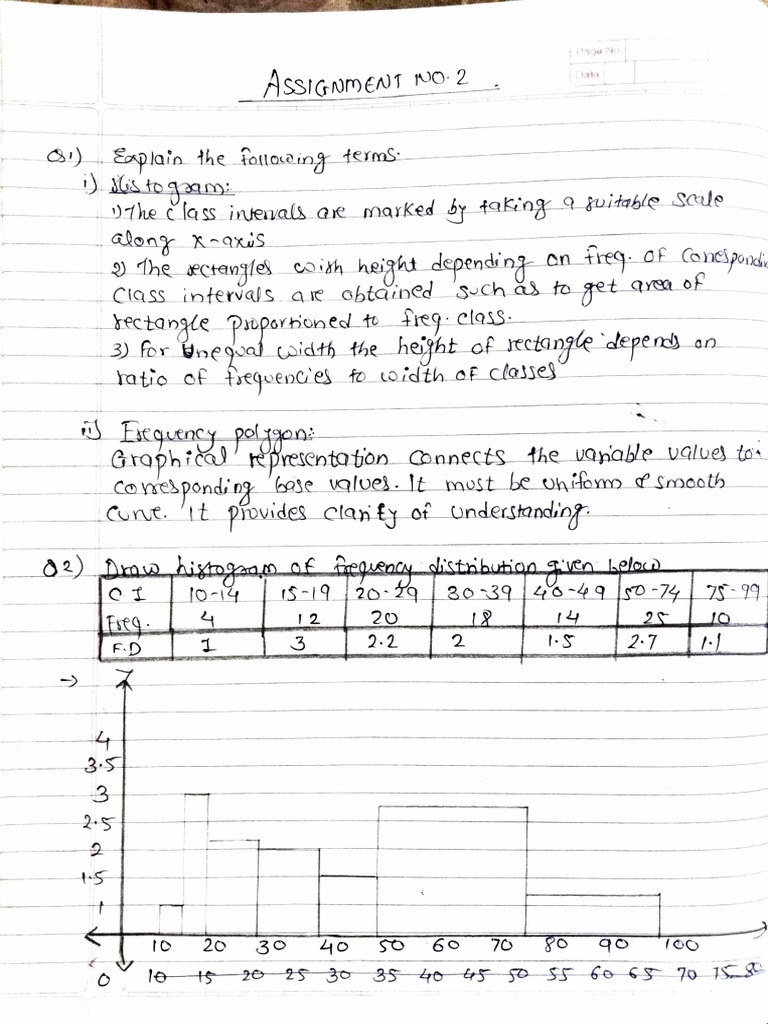 Page No.
Date
ASSIGNMENT NO. 2 .
Q1) Explain the following terms.
i) Histogram:
1) The class intervals are marked by taking a suitable scale
along x-axis
2) The rectangles with height depending on freq. of correspondi
class intervals are obtained such as to get area of
rectangle proportioned to freq. class.
3) For unequal width the height of rectangle depends on
ratio of frequencies to width of classes
ii) Frequency polygon:
Graphical representation connects the variable values to
corresponding base values. It must be uniform & smooth
curve. It provides clarity of understanding.
Q2) Draw histogram of frequency distribution given below
C I 10-14 15-19 20-29 30-39 40-49 50-74 75-99
Freq. 4 12 20 18 14 25 10
F.D 1 3 2.2 2 1.5 2.7 1.1
4
3.5
3
2.5
2
1.5
1
10 20 30 40 50 60 70 80 90 100
0 10 15 20 25 30 35 40 45 50 55 60 65 70 75 80